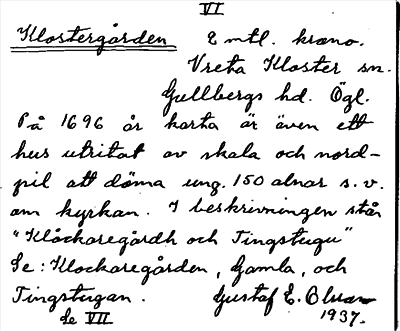 VI
Klostergården 2 mtl. krono.
Vreta Kloster sn.
Gullbergs hd. Ögl.
På 1696 års karta är även ett
hus utritat av skala och nord-
pil att döma ung. 150 alnar s.v.
om kyrkan. I beskrivningen står
"Klåckaregårdh och Tingstugu"
Se: Klockaregården, Gamla, och
Tingstugan. Gustaf E.
Se VII 1937.